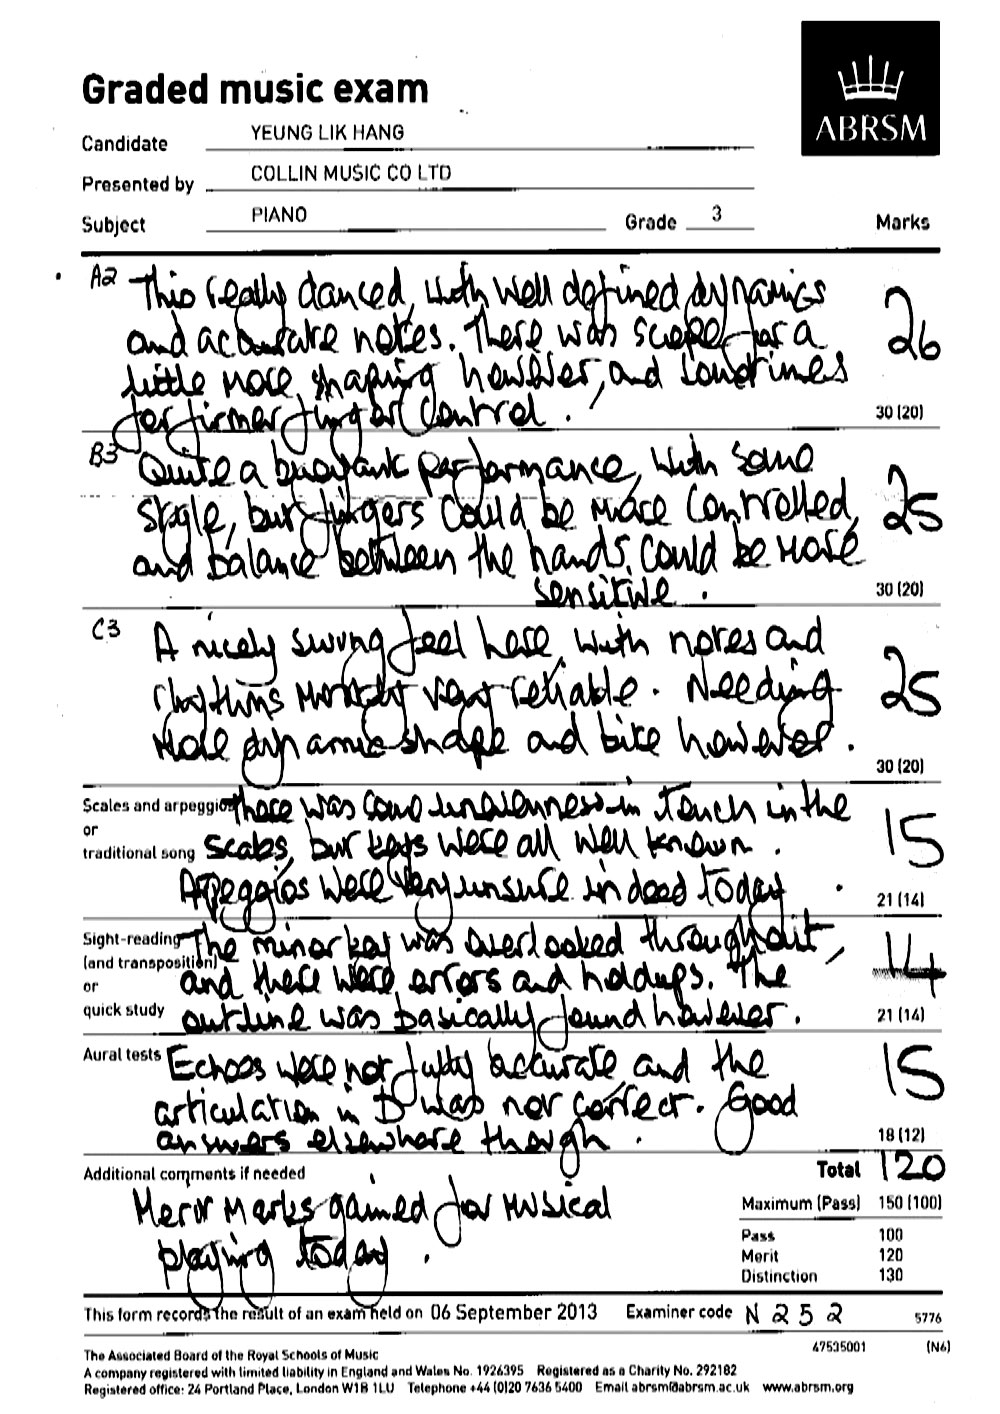 Graded music exam
ABRSM
Candidate YEUNG LIK HANG
Presented by COLLIN MUSIC CO LTD
Subject PIANO Grade 3 Marks
A2 This really danced, with well defined dynamics
and accurate notes. There was scope for a
little more shaping however, and sometimes
for firmer finger control. 26
30 (20)
B3 Quite a buoyant performance, with some
style, but fingers could be more controlled, 25
and balance between the hands could be more
sensitive. 30 (20)
C3 A nicely swung feel here, with notes and
rhythms mostly very reliable. Needing 25
more dynamic shape and bite however.
30 (20)
Scales and arpeggios There was some unevenness in touch in the
or
traditional song scales, but keys were all well known. 15
Arpeggios were very unsure indeed today. 21 (14)
Sight-reading The minor key was overlooked throughout,
(and transposition) and there were errors and holdups. The 14
or
quick study outline was basically found however. 21 (14)
Aural tests Echoes were not fully accurate and the 15
articulation in D was not correct. Good
answers elsewhere though. 18 (12)
Additional comments if needed Total 120
Merit marks gained for musical Maximum (Pass) 150 (100)
playing today. Pass 100
Merit 120
Distinction 130
This form records the result of an exam held on 06 September 2013 Examiner code N 2 5 2 5776
47535001 (N6)
The Associated Board of the Royal Schools of Music
A company registered with limited liability in England and Wales No. 1926395 Registered as a Charity No. 292182
Registered office: 24 Portland Place, London W1B 1LU Telephone +44 (0)20 7636 5400 Email abrsm@abrsm.ac.uk www.abrsm.org